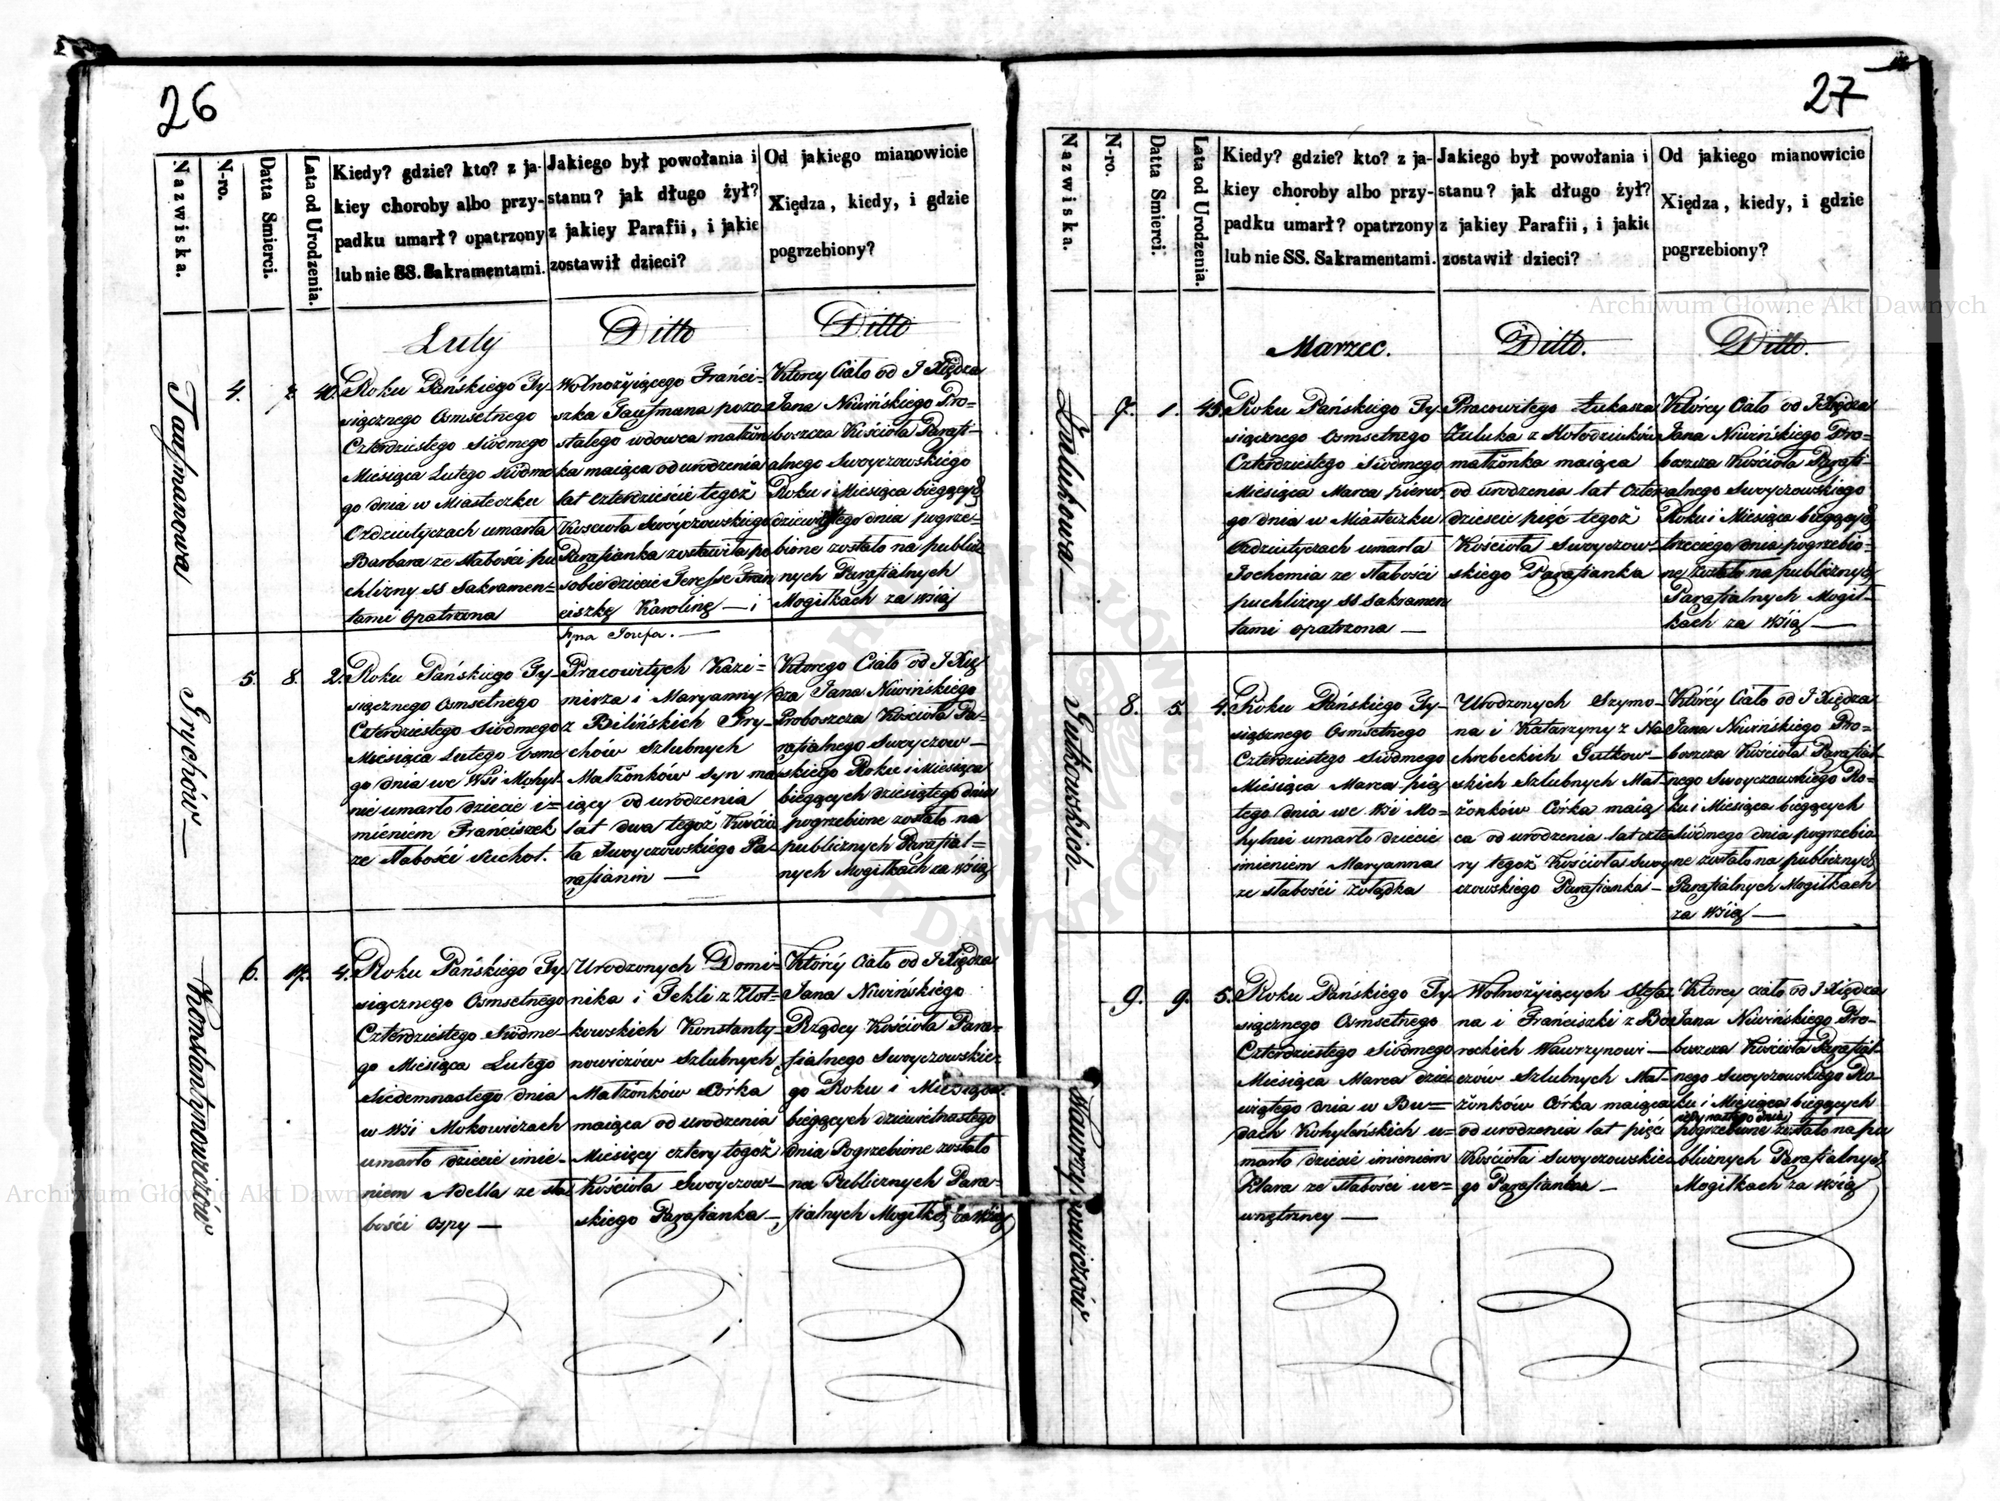 26
Nazwiska.
N-ro.
Datta Smierci.
Lata od Urodzenia.
Kiedy? gdzie? kto? z ja-
kiey choroby albo przy-
padku umarł? opatrzony
lub nie SS. Sakramentami.
Jakiego był powołania i
stanu? jak długo żył?
z jakiey Parafii, i jakie
zostawił dzieci?
Od jakiego mianowicie
Xiędza, kiedy, i gdzie
pogrzebiony?
Luty
Ditto
Ditto
Taufmanowa
4.
7.
40.
Roku Pańskiego Ty-
siącznego Osmsetnego
Czterdziestego Siódmego
Miesiąca Lutego siódme-
go dnia w Miasteczku
Ozdziutyczach umarła
Barbara ze słabości pu
chlizny SS Sakramen-
tami opatrzona
Wolnożyiącego Franci-
szka Taufmana pozo
stałego wdowca małżon
ka maiąca od urodzenia
lat czterdzieście tegoż
Kościoła Swoyczowskiego
Parafianka zostawiła po
sobie dzieci Teressę Fran
ciszkę Karolinę — i
syna Jozefa. —
Ktorey Ciało od J Xiędza
Jana Niwińskiego Pro-
boszcza Kościoła Parafi-
alnego Swoyczowskiego
Roku i Miesiąca bieżących
dziewiątego dnia pogrze-
bione zostało na public
znych Parafialnych
Mogiłkach za Wsią
Grychów —
5.
8.
2.
Roku Pańskiego Ty-
siącznego Osmsetnego
Czterdziestego siódmego
Miesiąca Lutego osme
go dnia we Wsi Mohyl
nie umarło dziecie i-
mieniem Franciszek
ze słabości suchot.
Pracowitych Kazi-
mirza i Maryanny
z Bilińskich Gry-
chow Szlubnych
Małżonków syn ma
iący od urodzenia
lat dwa tegoż Kościo
ła Swoyczowskiego Pa-
rafianin —
Ktorego Ciało od J Xię
dza Jana Niwińskiego
Proboszcza Kościoła Pa-
rafialnego Swoyczow-
skiego Roku i Miesiąca
bieżących dziesiątego dnia
pogrzebione zostało na
publicznych Parafial-
nych Mogiłkach za Wsią
Konstantynowiczów
6.
17.
4.
Roku Pańskiego Ty-
siącznego Osmsetnego
Czterdziestego Siódme-
go Miesiąca Lutego
Siedemnastego dnia
w Wsi Mokowiczach
umarło dziecie imie-
niem Adella ze sła
bości ospy —
Urodzonych Domi-
nika i Tekli z Złot-
kowskich Konstanty-
nowiczow Szlubnych
Małżonków Córka
maiąca od urodzenia
Miesięcy cztery tegoż
Kościoła Swoyczow-
skiego Parafianka —
Ktorey Ciało od J Xiędza
Jana Niwińskiego
Rządcy Kościoła Para-
fialnego Swoyczowskie-
go Roku i Miesiąca
bieżących dziewietnastego
dnia Pogrzebione zostało
na Publicznych Para-
fialnych Mogiłkach za Wsią
27
Nazwiska.
N-ro.
Datta Smierci.
Lata od Urodzenia.
Kiedy? gdzie? kto? z ja-
kiey choroby albo przy-
padku umarł? opatrzony
lub nie SS. Sakramentami.
Jakiego był powołania i
stanu? jak długo żył?
z jakiey Parafii, i jakie
zostawił dzieci?
Od jakiego mianowicie
Xiędza, kiedy, i gdzie
pogrzebiony?
Marzec.
Ditto.
Ditto.
7.
1.
45.
Roku Pańskiego Ty-
siącznego Osmsetnego
Czterdziestego Siódmego
Miesiąca Marca pierw
go dnia w Miasteczku
Ozdziutyczach umarła
Jochemia ze słabości
puchlizny SS Sakramen
tami opatrzona —
Pracowitego Łukasza
z Hołodziuków
małżonka maiąca
od urodzenia lat czter
dzieście pięć tegoż
Kościoła Swoyczow-
skiego Parafianka
Ktorey Ciało od J Xiędza
Jana Niwińskiego Pro-
boszcza Kościoła Parafi-
alnego Swoyczowskiego
Roku i Miesiąca bieżących
trzeciego dnia pogrzebio-
ne zostało na publicznych
Parafialnych Mogił-
kach za Wsią —
Gutkowskich —
8.
5.
4.
Roku Pańskiego Ty-
siącznego Osmsetnego
Czterdziestego Siódmego
Miesiąca Marca pią
tego dnia we Wsi Mo-
hylnie umarło dziecie
imieniem Maryanna
ze słabości żołądka
Urodzonych Szymo-
na i Katarzyny z Na
chrebeckich Gutkow-
skich Szlubnych Mał-
żonków Córka maią
ca od urodzenia lat czte
ry tegoż Kościoła Swoy
czowskiego Parafianka —
Ktorey Ciało od J Xiędza
Jana Niwińskiego Pro-
boszcza Kościoła Parafial-
nego Swoyczowskiego Ro-
ku i Miesiąca bieżących
siódmego dnia pogrzebio
ne zostało na publicznych
Parafialnych Mogiłkach
za Wsią —
Wawrzynowiczów —
9.
9.
5.
Roku Pańskiego Ty-
siącznego Osmsetnego
Czterdziestego Siódmego
Miesiąca Marca dzie
wiątego dnia w Bu-
dach Kohyleńskich u-
marło dziecie imieniem
Klara ze słabości we-
wnętrzney —
Wolnożyiących Stefa
na i Franciszki z Bo
reckich Wawrzynowi-
czów Szlubnych Mał-
żonków Córka maiąca
od urodzenia lat pięć
Kościoła Swoyczowskie
go Parafianka —
Ktorey ciało od J Xiędza
Jana Niwińskiego Pro-
boszcza Kościoła Parafial-
nego Swoyczowskiego Ro-
ku i Miesiąca bieżących
pogrzebione zostało na pu
blicznych Parafialnych
Mogiłkach za Wsią
Archiwum Główne Akt Dawnych
Archiwum Główne Akt Dawnych